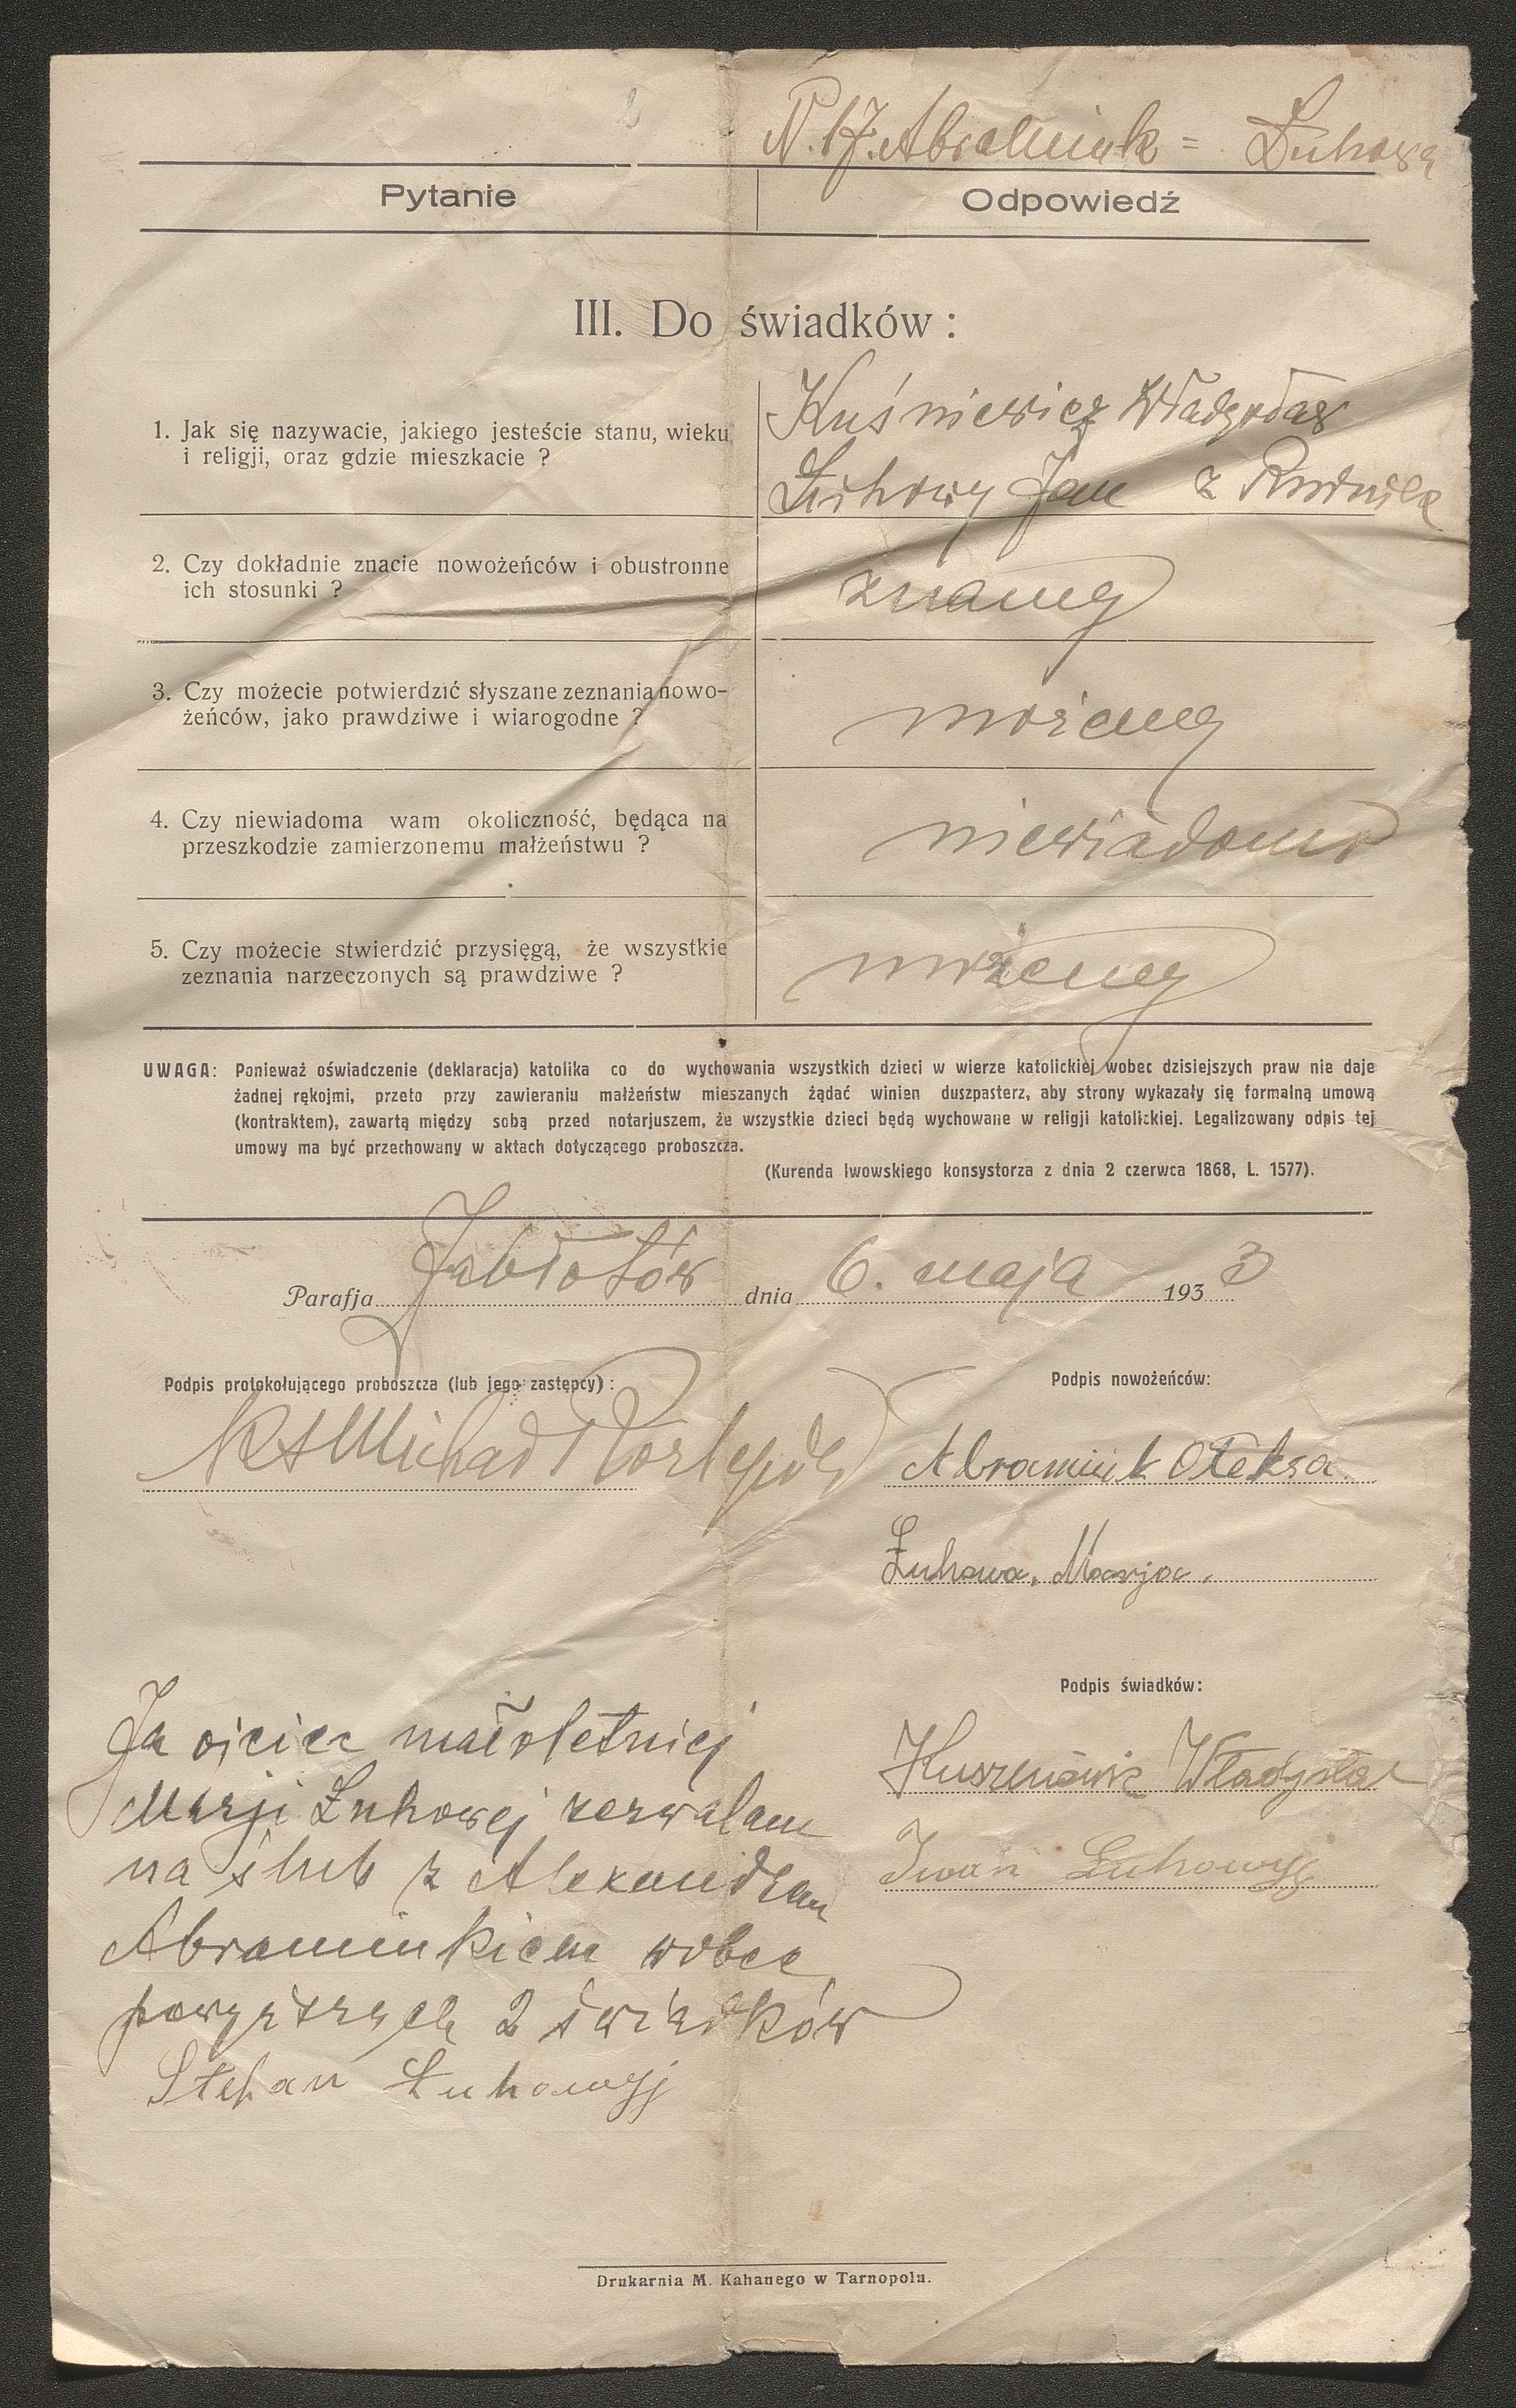 N. 17. Abramiuk = Łuhowa
Pytanie
Odpowiedź
III. Do świadków :
1. Jak się nazywacie, jakiego jesteście stanu, wieku
i religji, oraz gdzie mieszkacie ?
Kuśniewicz Władysław
Łuhowy Jan z Rudnik
2. Czy dokładnie znacie nowożeńców i obustronne
ich stosunki ?
znamy
3. Czy możecie potwierdzić słyszane zeznania nowo-
żeńców, jako prawdziwe i wiarogodne ?
możemy
4. Czy niewiadoma wam okoliczność, będąca na
przeszkodzie zamierzonemu małżeństwu ?
niewiadomo
5. Czy możecie stwierdzić przysięgą, że wszystkie
zeznania narzeczonych są prawdziwe ?
możemy
UWAGA: Ponieważ oświadczenie (deklaracja) katolika co do wychowania wszystkich dzieci w wierze katolickiej wobec dzisiejszych praw nie daje
żadnej rękojmi, przeto przy zawieraniu małżeństw mieszanych żądać winien duszpasterz, aby strony wykazały się formalną umową
(kontraktem), zawartą między sobą przed notarjuszem, że wszystkie dzieci będą wychowane w religji katolickiej. Legalizowany odpis tej
umowy ma być przechowany w aktach dotyczącego proboszcza.
(Kurenda lwowskiego konsystorza z dnia 2 czerwca 1868, L. 1577).
Parafja Jabłotów dnia 6. maja 1933
Podpis protokołującego proboszcza (lub jego zastępcy) :
Podpis nowożeńców:
Ks Michał
Abramiuk Ołeksa
Łuhowa. Marja.
Podpis świadków:
Ja ojciec małoletniej
Marji Łuhowej zezwalam
na ślub z Alexandrem
Abramiukiem wobec
powyższych 2 świadków
Stefan Łuhowyj
Kuszniewic Władysław
Iwan Łuhowyj
Drukarnia M. Kahanego w Tarnopolu.